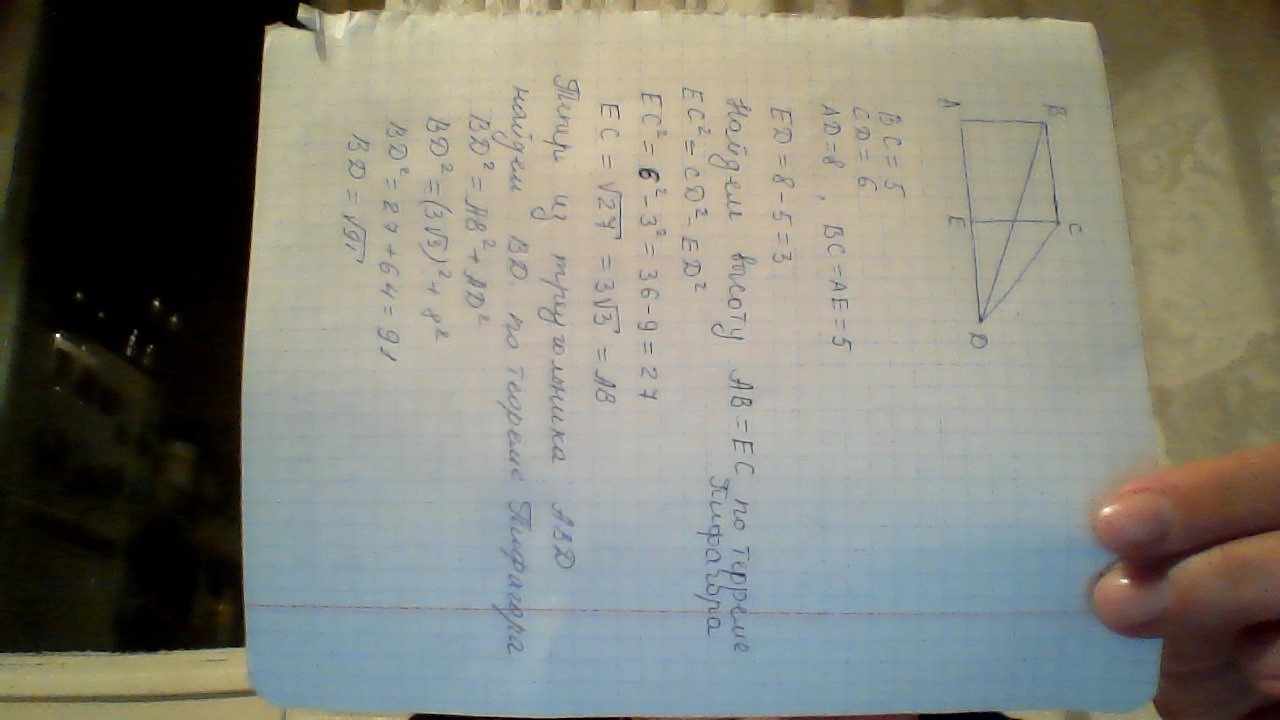 B
C
A
E
D
BC = 5
CD = 6
AD = 8 , BC = AE = 5
ED = 8 - 5 = 3
Найдем высоту AB = EC по терреме
Пифагора
EC² = CD² - ED²
EC² = 6² - 3² = 36 - 9 = 27
EC = √27 = 3√3 = AB
Тепер из треугольника ABD
найдем BD по теореме Пифагора
BD² = AB² + AD²
BD² = (3√3)² + 8²
BD² = 27 + 64 = 91
BD = √91